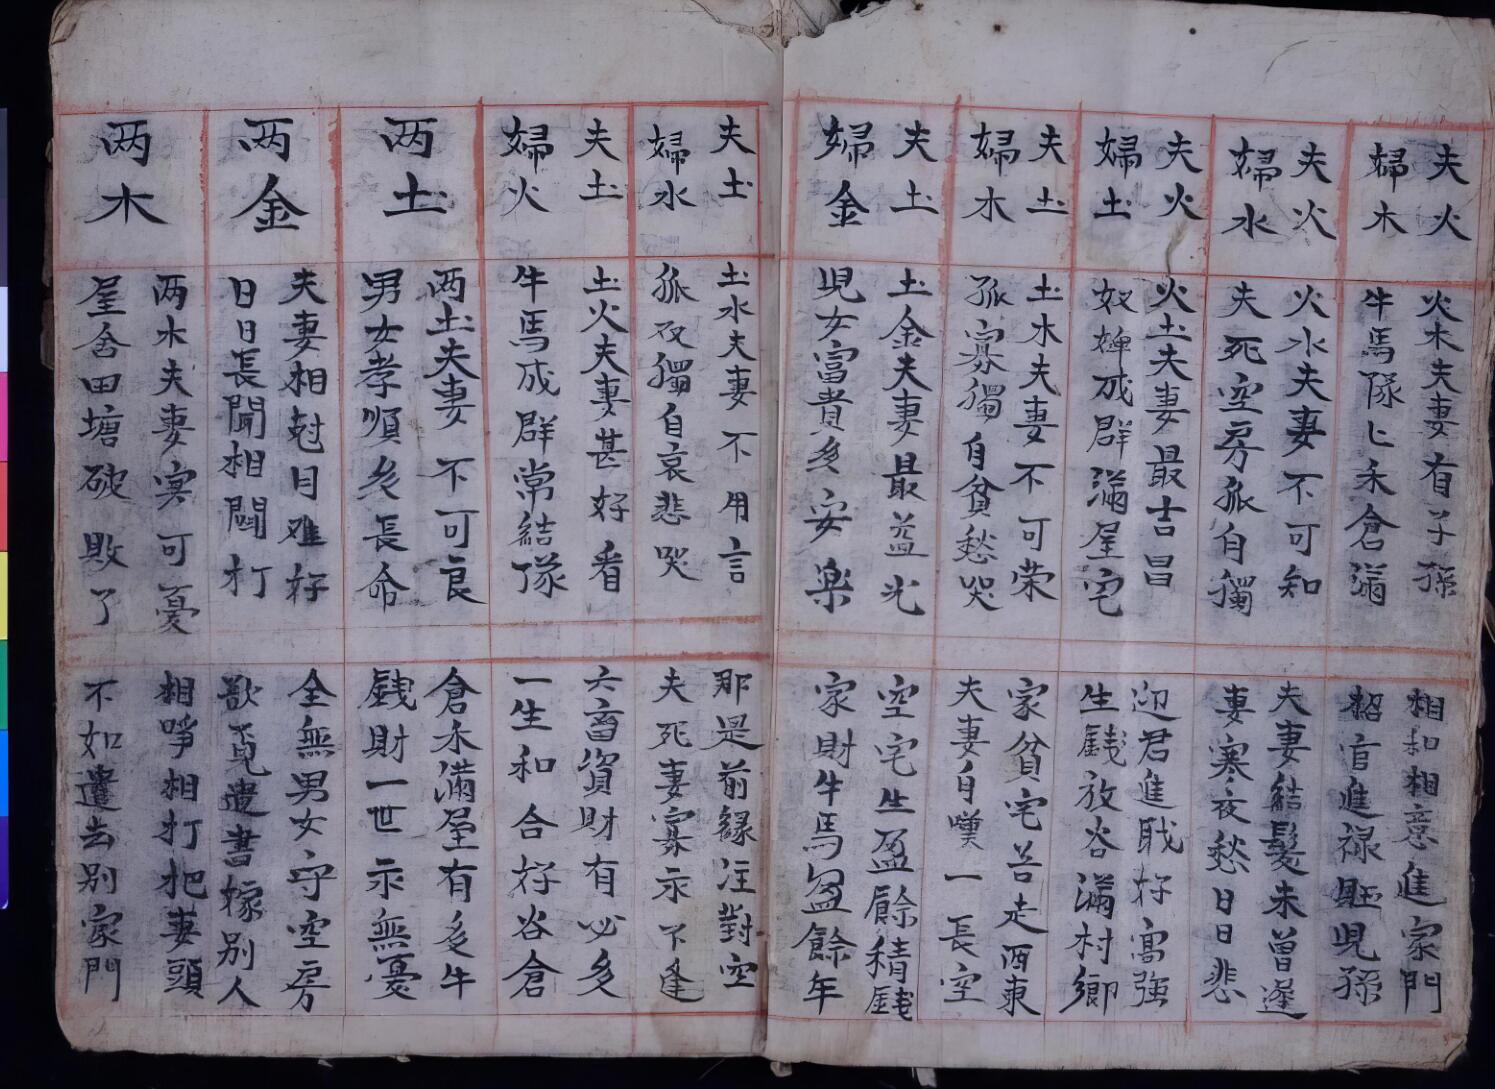 夫火
婦木
火木夫妻有子孫
牛馬隊匕禾倉滿
相和相意進家門
招官進禄旺児孫
夫火
婦水
火水夫妻不可知
夫死空房孤自獨
夫妻結髮未曾遂
妻寒夜愁日日悲
夫火
婦土
火土夫妻最吉昌
奴婢成群滿屋宅
迎君進戢好富強
生錢放谷滿村鄉
夫土
婦木
土木夫妻不可荣
孤寡獨自貧愁哭
家貧宅苦走西東
夫妻自嘆一長空
夫土
婦金
土金夫妻最益光
児女富貴多安樂
空宅生盈餘精錢
家財牛馬盈餘年
夫土
婦水
土水夫妻不用言
孤夜獨自哀悲哭
那是前緣注對空
夫死妻寡示不逢
夫土
婦火
土火夫妻甚好看
牛馬成群常結隊
六畜資財有必多
一生和合好谷倉
两土
两土夫妻不可良
男女孝順多長命
倉禾滿屋有多牛
錢財一世示無憂
两金
夫妻相尅目难好
日日長聞相閗打
全無男女守空房
歐覓遣書嫁别人
两木
两木夫妻实可憂
屋舍田塘破敗了
相爭相打把妻頭
不如遣去别家門